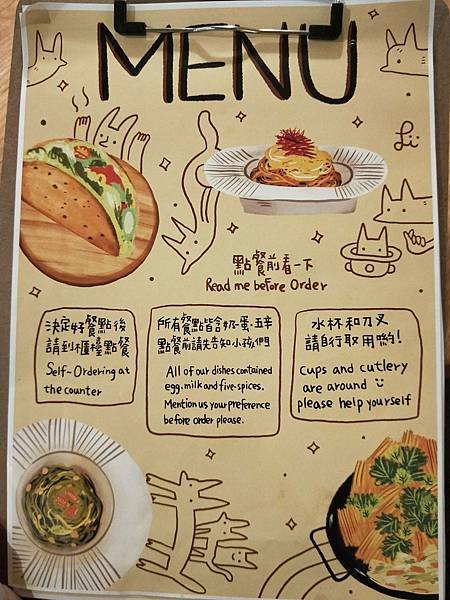 MENU
點餐前看一下
Read me before Order
決定好餐點後
請到櫃檯點餐
Self-Ordering at
the counter
所有餐點皆含奶·蛋·五辛
點餐前請先告知小孩們
All of our dishes contained
egg, milk and five-spices.
Mention us your preference
before order please.
水杯和刀叉
請自行取用喲!
Cups and cutlery
are around
please help yourself